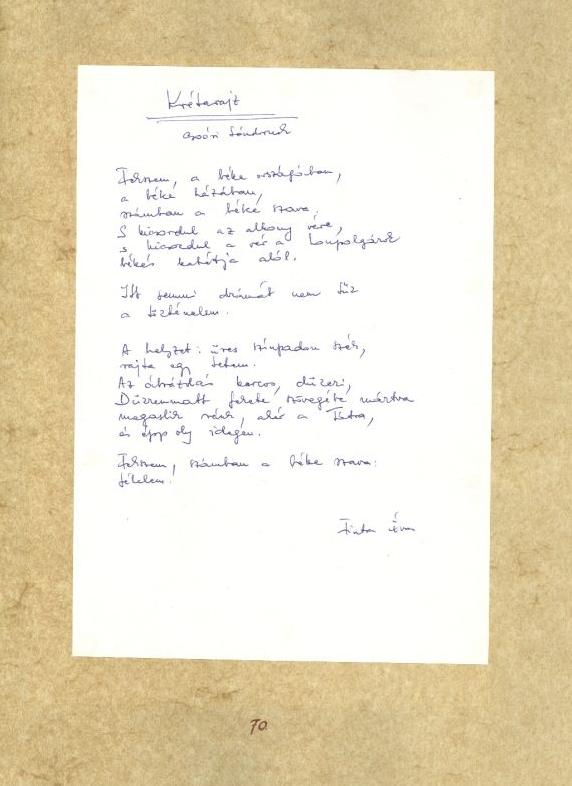 Krétarajz
Csoóri Sándornak
Fekszem, a béke országában,
a béke házában,
számban a béke szava.
S kicsordul az alkony vére,
s kicsordul a vér a honpolgárok
békés kabátja alól.
Itt semmi drámát nem fűz
a történelem.
A helyzet: üres színpadon szék,
rajta egy tetem.
Az ábrázolás karcos, düreri,
Dürrenmatt fekete szövegébe mártva
magaslik ránk, akár a Tátra,
és épp oly idegen.
Fekszem, számban a béke szava:
félelem.
Finta Éva
70